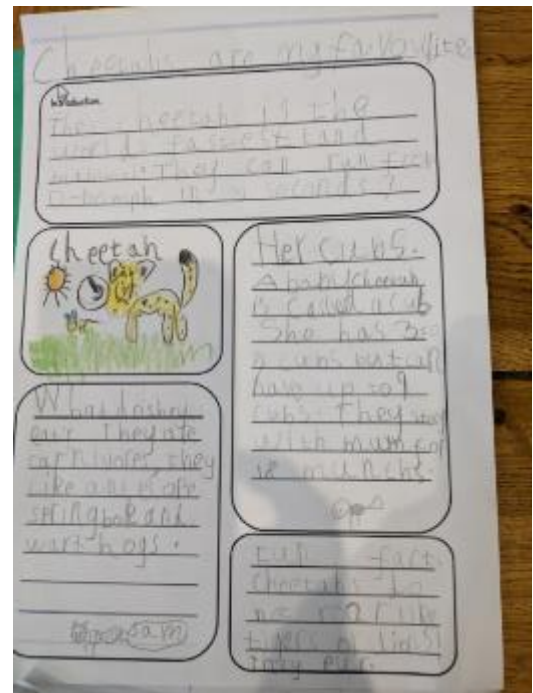 Cheetahs are my favourite
Introduction
The cheetah is the
worlds fastest land
They can run from
in seconds
Cheetah
Her cubs.
A baby cheetah
is called a cub
She has 3
cubs but can
have up to 9
cubs. They stay
with mum for
18 munths.
What do they
eat? They are
carnivores, they
like antelope
springbok and
warthogs.
sam
fact.
Cheetahs do
not like
tigers or lions!
They